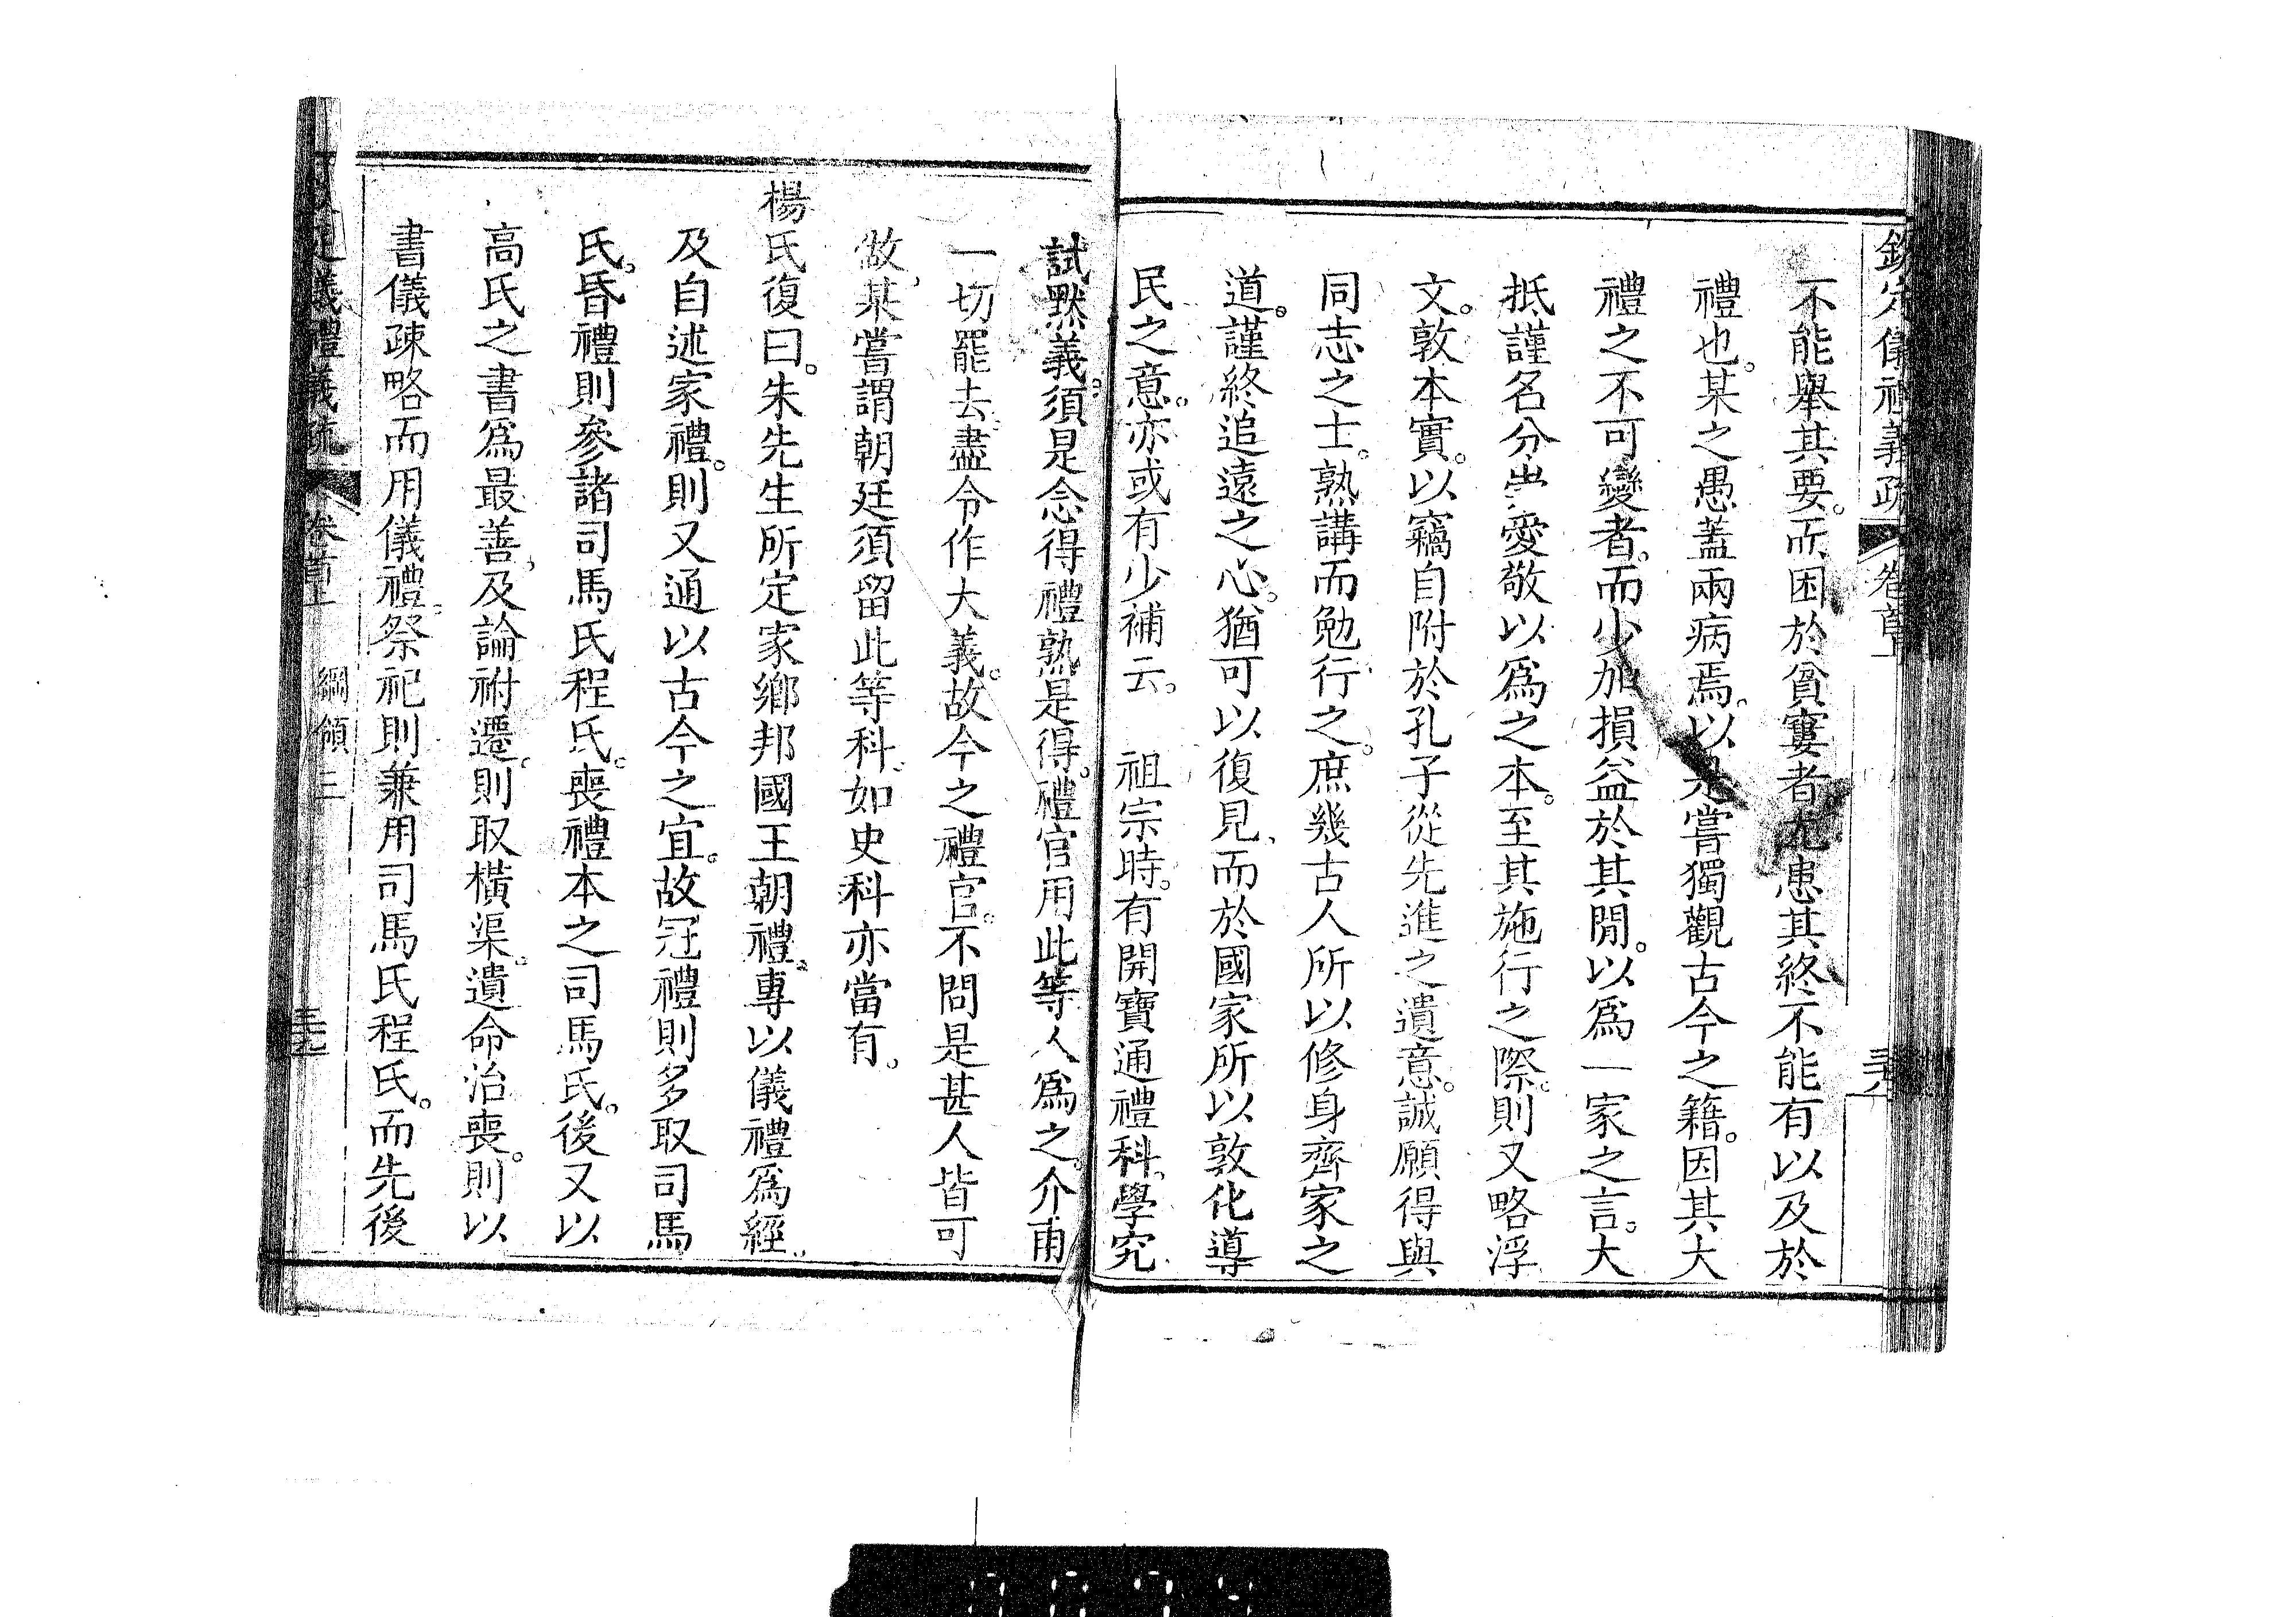 欽定儀禮義疏 卷首上 三十八
不能舉其要。而困於貧窶者尤患其終不能有以及於
禮也。某之愚蓋兩病焉。以是嘗獨觀古今之籍。因其大
禮之不可變者。而少加損益於其閒。以爲一家之言。大
抵謹名分崇愛敬以爲之本。至其施行之際。則又略浮
文。敦本實。以竊自附於孔子從先進之遺意。誠願得與
同志之士。熟講而勉行之。庶幾古人所以修身齊家之
道。謹終追遠之心。猶可以復見。而於國家所以敦化導
民之意。亦或有少補云。 祖宗時。有開寶通禮科。學究
試默義。須是念得禮熟是得。禮官用此等人爲之。介甫
一切罷去。盡令作大義。故今之禮官。不問是甚人皆可
做。某嘗謂朝廷須留此等科。如史科亦當有。
楊氏復曰。朱先生所定家鄉邦國王朝禮。專以儀禮爲經。
及自述家禮。則又通以古今之宜。故冠禮則多取司馬
氏。昏禮則參諸司馬氏程氏。喪禮本之司馬氏。後又以
高氏之書爲最善。及論祔遷。則取橫渠。遺命治喪。則以
書儀疎略而用儀禮。祭祀則兼用司馬氏程氏。而先後
儀禮義疏 卷首上 綱領三 三十九